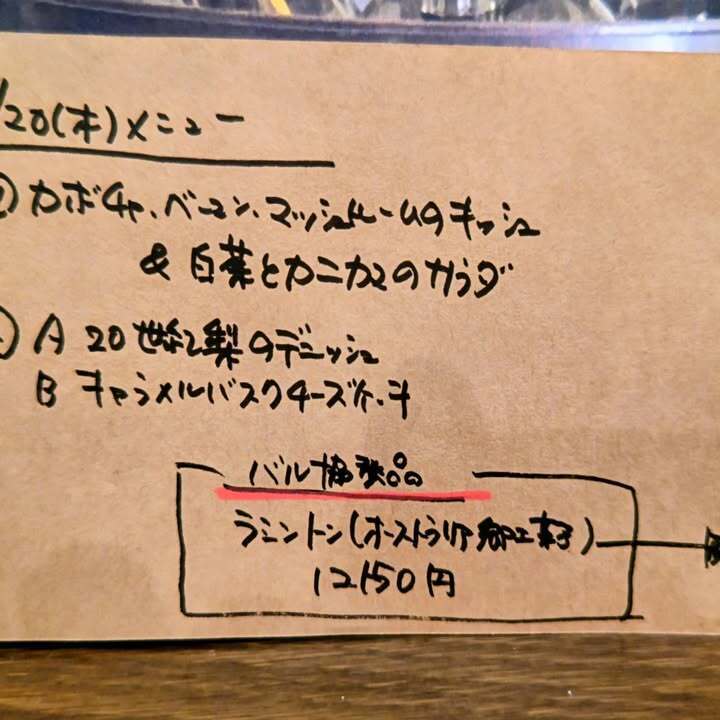 /20(木)メニュー
カボチャ、ベーコン、マッシュルームのキッシュ
& 白菜とカニカマのサラダ
A 20世紀梨のデニッシュ
B キャラメルバスクチーズケーキ
バル協賛品
ラミントン(オーストラリア郷土菓子)
150円